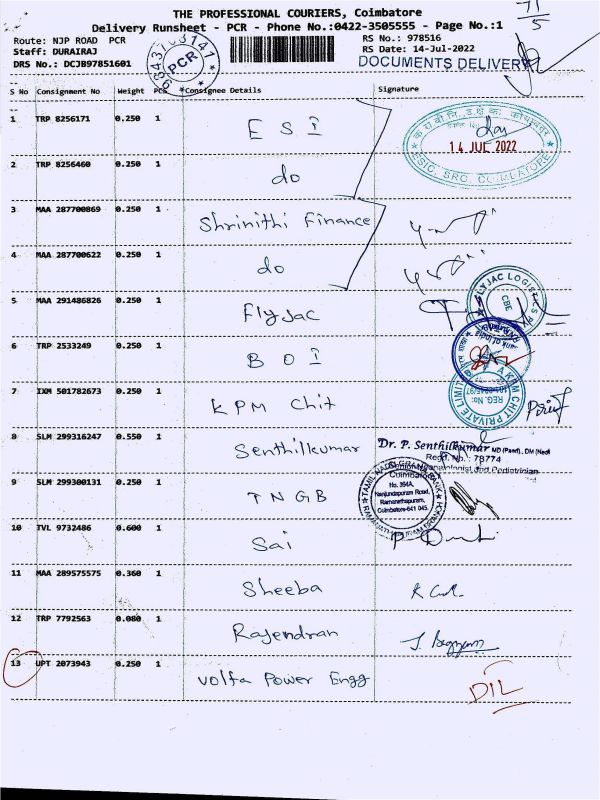 THE PROFESSIONAL COURIERS, Coimbatore
Delivery Runsheet - PCR - Phone No.:0422-3505555 - Page No.:1
71/5
Route: NJP ROAD PCR
RS No.: 978516
Staff: DURAIRAJ
RS Date: 14-Jul-2022
DRS No.: DCJ897851601
PCR
DOCUMENTS DELIVERY
S No Consignment No Weight Pcs Consignee Details Signature
1 TRP 8256171 0.250 1 ESI
14 JUL 2022
ESIC, SRO, COIMBATORE
2 TRP 8256460 0.250 1 do
3 MAA 287700869 0.250 1 Shrinithi Finance
4 MAA 287700622 0.250 1 do
5 MAA 291486826 0.250 1 Flyjac
CBE
6 TRP 2533249 0.250 1 BOI
7 IXM 501782673 0.250 1 KPM Chit
REG. No:
8 SLM 299316247 0.550 1 Senthilkumar
Dr. P. Senthilkumar MD (Paed)., DM (Neo)
Regd. No.: 78774
9 SLM 299300131 0.250 1 TNGB
TAMIL NADU GRAMA BANK
No. 394A,
Nanjundapuram Road,
Ramanathapuram,
Coimbatore-641 045.
10 TVL 9732486 0.600 1 Sai
11 MAA 289575575 0.360 1 Sheeba
12 TRP 7792563 0.080 1 Rajendran
13 UPT 2073943 0.250 1 Volfa Power Engg
DIL